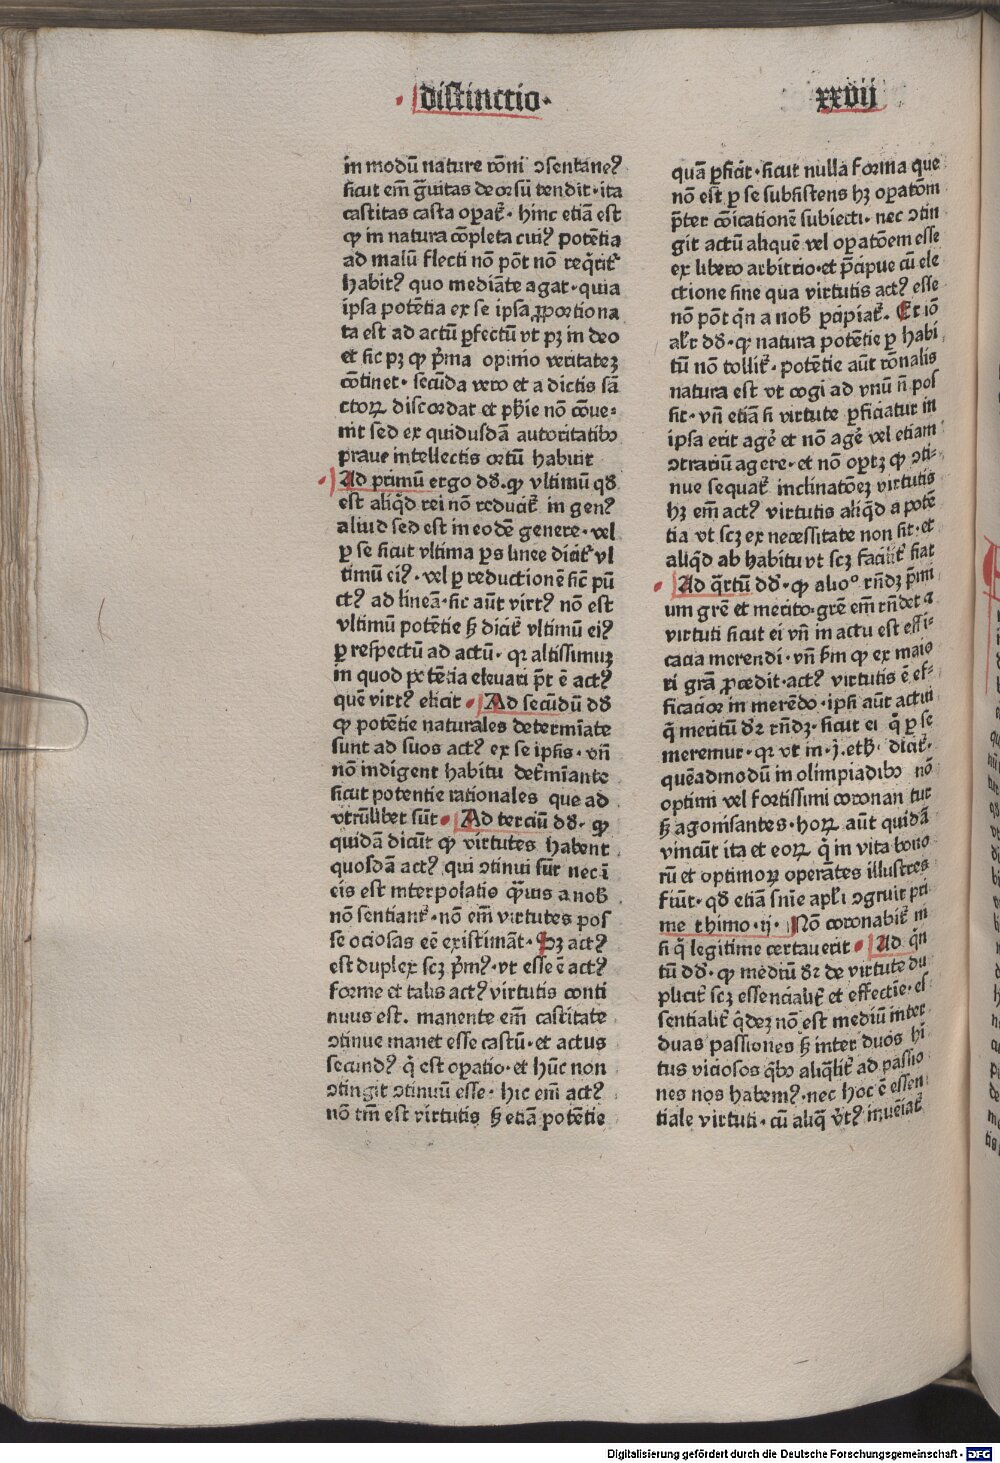 distinctio·
xxvij
in modū nature rōni ɔsentaneꝰ
sicut em̄ grauitas deorsū tendit· ita
castitas casta oꝑat᷑· hinc etiā est
ꝙ in natura cōpleta cuiꝰ potētia
ad malū flecti nō pōt nō reqͥrit᷑
habitꝰ quo mediāte agat· quia
ipsa potētia ex se ipsa ꝓportiona
ta est ad actū ꝑfectū vt pꝫ in deo
et sic pꝫ ꝙ pͥma opinio veritateꝫ
cōtinet· secūda vero et a dictis sā
ctoꝝ discordat et phīe nō cōue⸗
nit sed ex quibusdā autoritatibꝰ
praue intellectis ortū habuit
Ad primū ergo dd̄· ꝙ vltimū qd̄
est aliqͥd rei nō reducit᷑ in genꝰ
aliud sed est in eodē genere· vel
ꝑ se sicut vltima ꝑs linee dicit᷑ vl
timū eiꝰ· vel ꝑ reductionē sic̄ pū
ctꝰ ad lineā· sic aūt virtꝰ nō est
vltimū potētie ſꝫ dicit᷑ vltimū eiꝰ
ꝑ respectū ad actū· qꝛ altissimuꝫ
in quod potētia eleuari pōt ē actꝰ
quē virtꝰ elicit· Ad secūdū dd̄
ꝙ potētie naturales determīate
sunt ad suos actꝰ ex se ipsis· vn̄
nō indigent habitu det᷑mīante
sicut potentie rationales que ad
vtrūlibet sūt· Ad terciū dd̄· ꝙ
quidā dicūt ꝙ virtutes habent
quosdā actꝰ qui ɔtinui sūt nec ī
eis est interpolatio qͣuis a nob̄
nō sentiant᷑· nō em̄ virtutes pos
se ociosas eē existimāt· Pꝫ actꝰ
est duplex scꝫ pͥmꝰ· vt esse ē actꝰ
forme et talis actꝰ virtutis conti
nuus est. manente em̄ castitate
ɔtinue manet esse castū· et actus
secundꝰ qͥ est oꝑatio· et hūc non
ɔtingit ɔtinuū esse· hic em̄ actꝰ
nō tm̄ est virtutis ſꝫ etiā potētie
quā ꝑficit· sicut nulla forma que
nō est ꝑ se subsistens hꝫ oꝑatōm
p̄ter cōicationē subiecti· nec ɔtin
git actū aliquē vel oꝑatōem esse
ex libero arbitrio· et p̄cipue cū ele
ctione sine qua virtutis actꝰ esse
nō pōt qͥn a nob̄ ꝑcipiat᷑· Et iō
al'r dd̄· qꝛ natura potētie ꝑ habi
tū nō tollit᷑· potētie aūt rōnalis
natura est vt cogi ad vnū n̄ pos
sit· vn̄ etiā si virtute ꝑficiatur in
ipsa erit agē et nō agē vel etiam
ɔtrariū agere· et nō oꝑtꝫ ꝙ ɔti⸗
nue sequat᷑ inclinatōeꝫ virtutis
hꝫ em̄ actꝰ virtutis aliqͥd a potē
tia vt scꝫ ex necessitate non sit· et
aliqͥd ab habitu vt scꝫ facilit᷑ fiat
Ad qͣrtū dd̄· ꝙ alioº rn̄dꝫ pͥmi
um grē et merito· grē em̄ rn̄det a
virtuti sicut ei vn̄ in actu est effi⸗
cacia merendi· vn̄ ƀm ꝙ ex maio
ri grā ꝓcedit· actꝰ virtutis ē ef⸗
ficacior in merēdo· ipsi aūt actui
qͥ meritū dr̄ rn̄dꝫ· sicut ei qͥ ꝑ se
meremur· qꝛ vt in ·j· eth̄· dicit᷑·
quēadmodū in olimpiadibꝰ nō
optimi vel fortissimi coronan tur
ſꝫ agonisantes· hoꝝ aūt quidā
vincūt ita et eoꝝ qͥ in vita bono
rū et optimoꝝ operātes illustres
fiūt· qd̄ etiā sn̄ie apl'i ɔgruit pri
me thimo· ij· Nō coronabit᷑ ni
si qͥ legitime certauerit· Ad qͥn
tū dd̄· ꝙ mediū dr̄ de virtute du
plicit᷑ scꝫ essencialit᷑ et effectīe· es
sentialit᷑ qͥdeꝫ nō est mediū inter
duas passiones ſꝫ inter duos hī
tus viciosos qͥbꝰ aliqͣlit᷑ ad passio
nes nos habemꝰ· nec hoc ē essen
tiale virtuti· cū aliqͣ v̓tꝰ inuēiat᷑
Digitalisierung gefördert durch die Deutsche Forschungsgemeinschaft · DFG